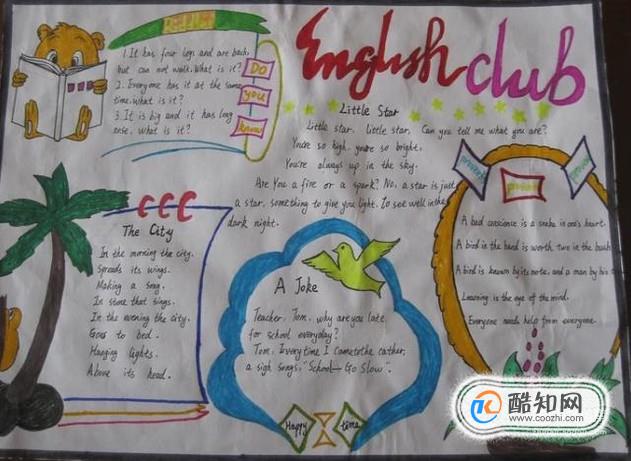 English club
1. It has four legs and one back,
but can not walk. What is it?
2. Everyone has it at the same
time. What is it?
3. It is big and it has long
What is it?
DO
you
know
Little Star
Little star, little star, Can you tell me what you are?
You're so high, you're so bright,
You're always up in the sky.
Are You a fire or a spark? No, a star is just
a star, something to give you light. To see well in the
dark night.
CCC
The City
In the morning the city.
Spreads its wings.
Making a song.
In stone that sings.
In the evening the city.
Goes to bed.
Hanging lights.
Above its head.
A Joke
Teacher: Tom, why are you late
for school everyday?
Tom: Every time I come to the
a sign "School— Go Slow".
Happy
time
proverb
A bad conscience is a snake in one's heart.
A bird in the hand is worth two in the bush
A bird is known by its note, and a man by his
Learning is the eye of the mind.
Everyone needs help from everyone.
酷知网
www.coozhi.com